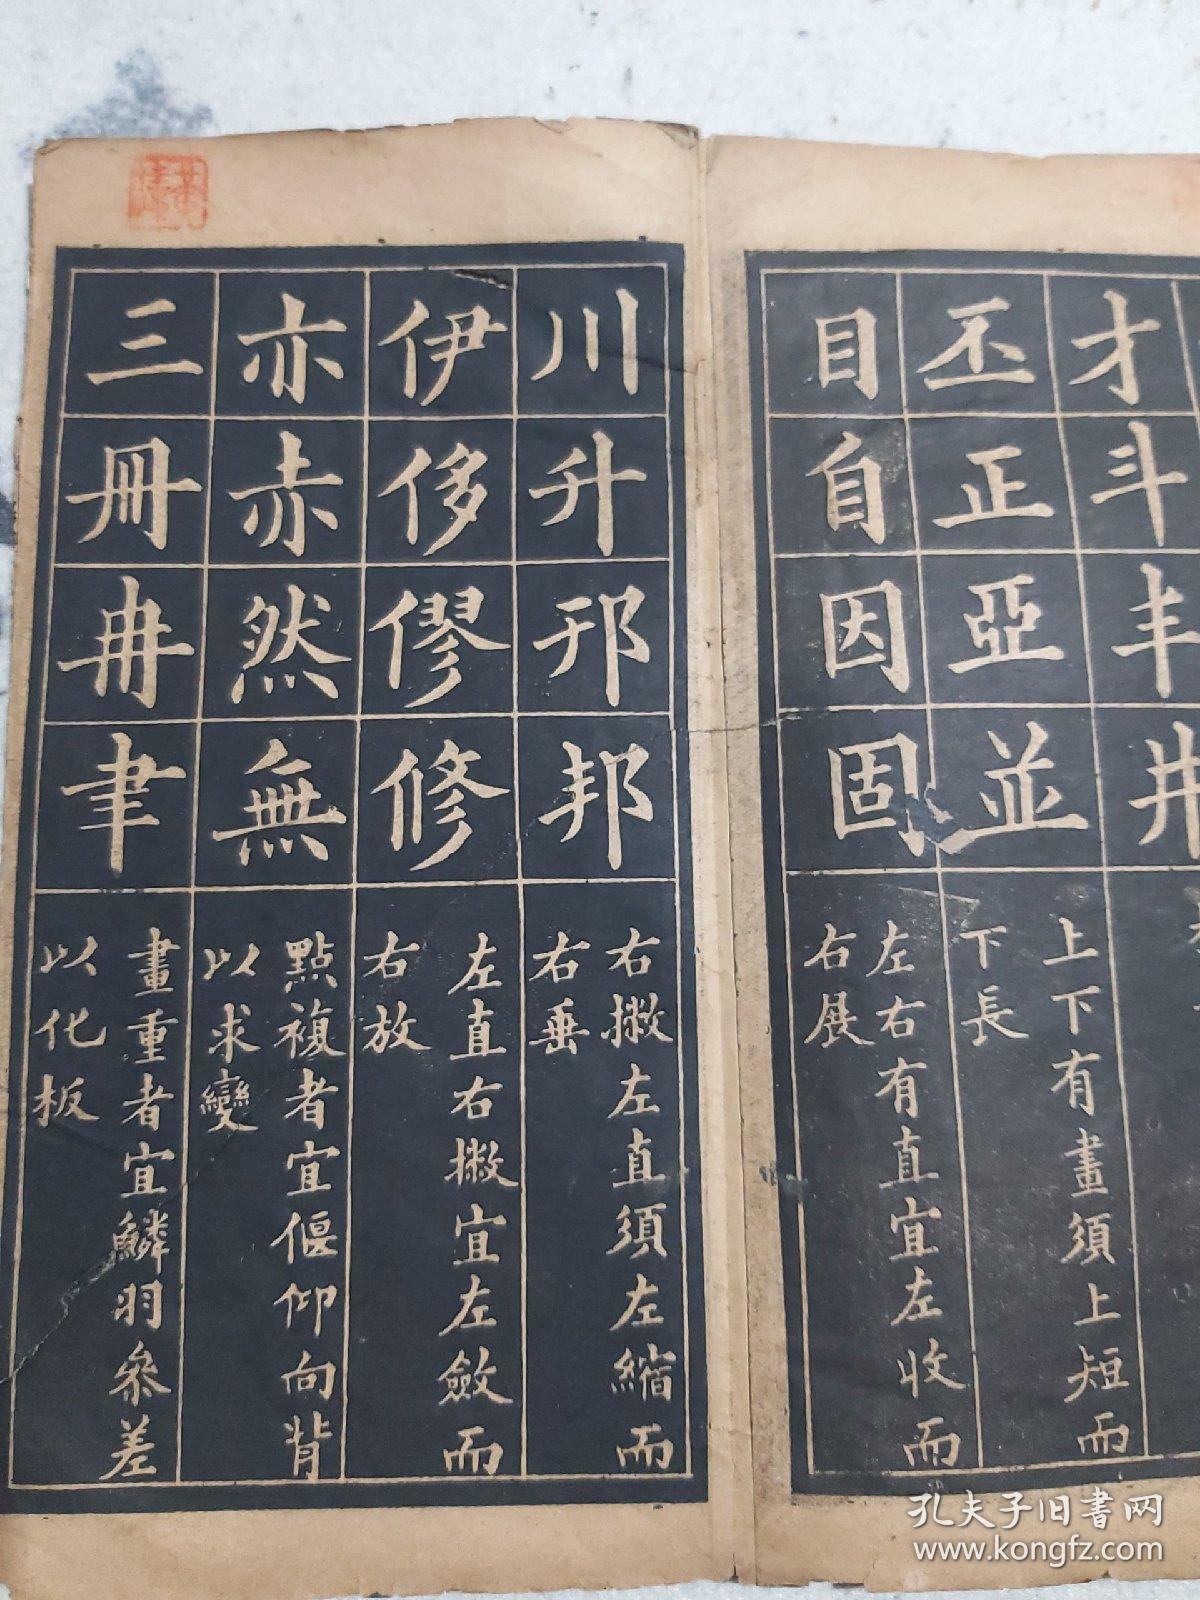 才斗丰井
丕正亞並
上下有畫須上短而
下長
目自因固
左右有直宜左收而
右展
川升邢邦
右撇左直須左縮而
右垂
伊侈僇修
左直右撇宜左斂而
右放
亦赤然無
點複者宜偃仰向背
以求變
三冊冉聿
畫重者宜鱗羽參差
以化板
孔夫子旧书网
www.kongfz.com